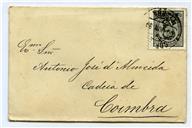 Exmo Snr
Antonio José d'Almeida
Cadeia de
Coimbra